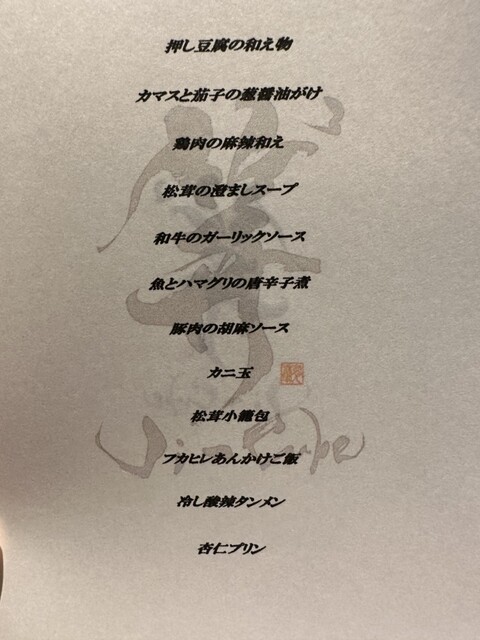 押し豆腐の和え物
カマスと茄子の葱醤油がけ
鶏肉の麻辣和え
松茸の澄ましスープ
和牛のガーリックソース
魚とハマグリの唐辛子煮
豚肉の胡麻ソース
カニ玉
松茸小籠包
フカヒレあんかけご飯
冷し酸辣タンメン
杏仁プリン